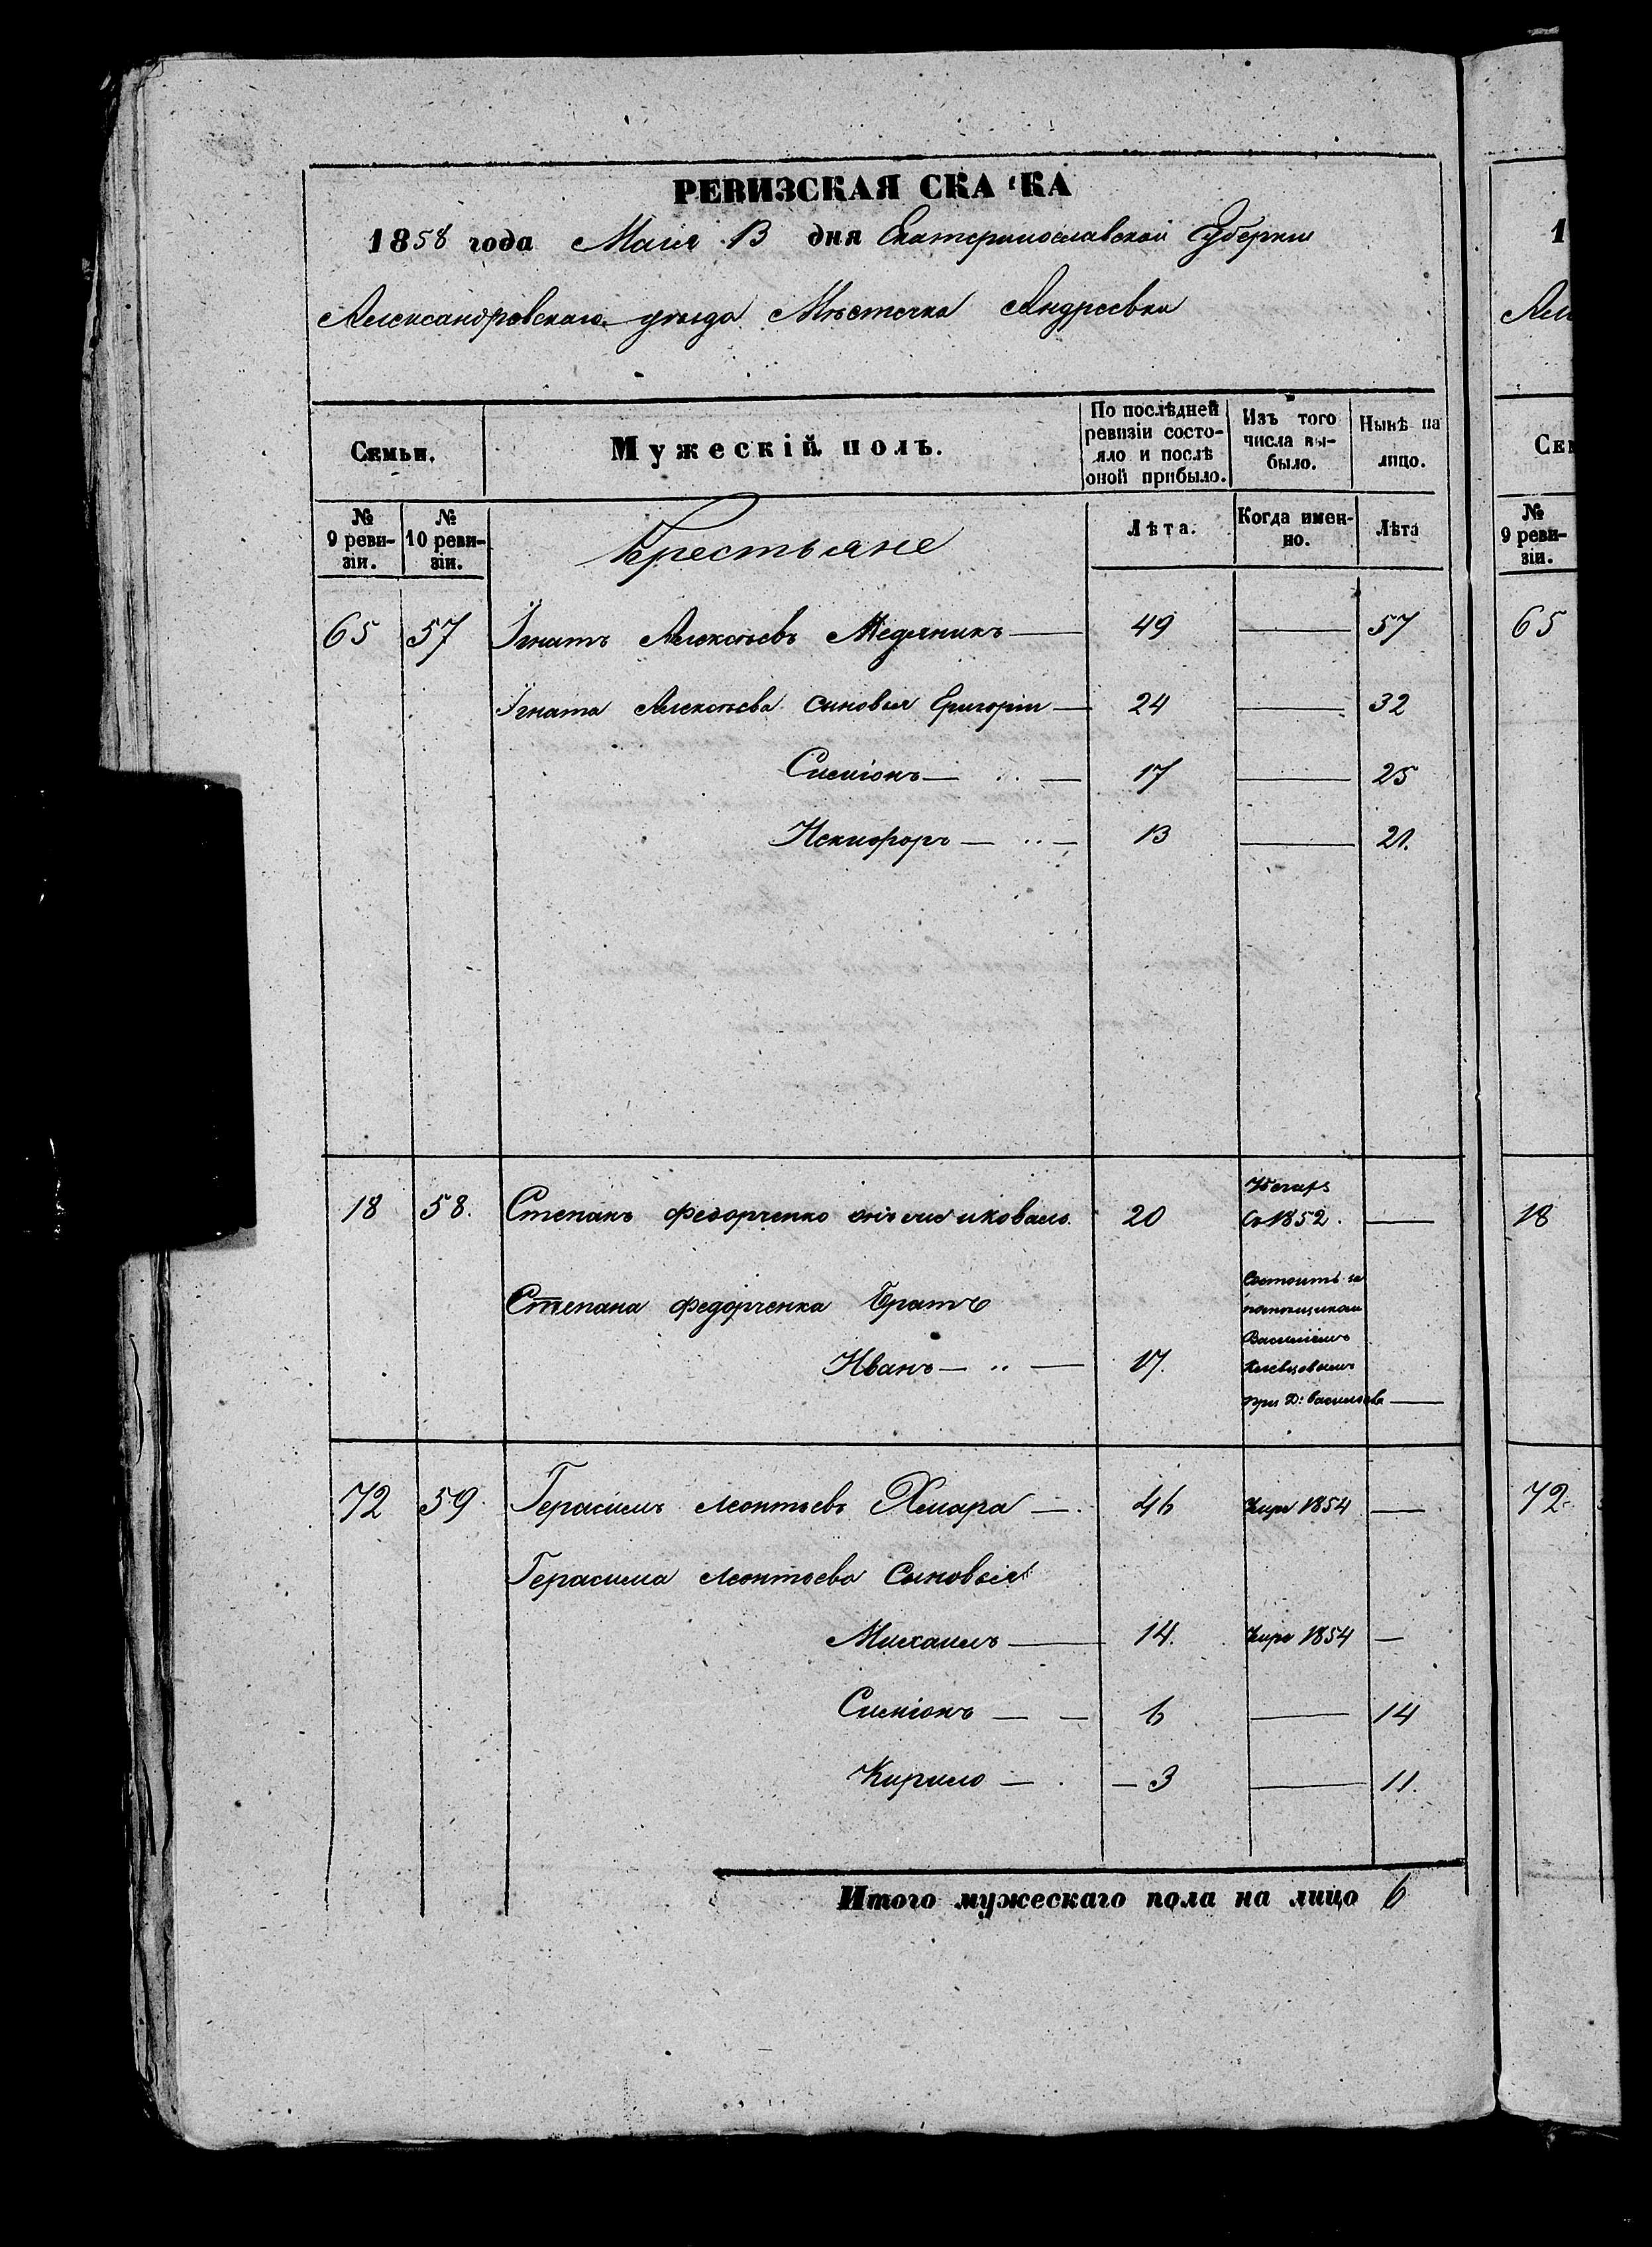 РЕВИЗСКАЯ СКА КА
1858 года Маія 13 дня Екатеринославской Губерніи
Александровскаго уѣзда Мѣстечка Андреевки
Семьи.
Мужескій полъ.
По послѣдней ревизіи состояло и послѣ оной прибыло.
Изъ того числа выбыло.
Нынѣ на лицо.
№ 9 ревизіи.
№ 10 ревизіи.
Крестьяне
Лѣта.
Когда именно.
Лѣта
65 57 Игнатъ Алексѣевъ Медяникъ — 49 — 57
Игната Алексѣева сыновья Григорій — 24 — 32
Симіонъ — 17 — 25
Никифоръ — 13 — 21.
18 58. Степанъ Федорченко 20
Бѣгахъ
Съ 1852. —
Степана Федорченка Братъ
Иванъ — 17.
Состоитъ за
помѣщикомъ
Василіемъ
при Д: Васильевка —
72 59. Герасимъ Леонтьевъ Хмара — 46 Умре 1854 —
Герасима Леонтьева Сыновья
Михаилъ — 14. Умре 1854 —
Симіонъ — — 6 — 14
Кирило — — 3 — 11.
Итого мужескаго пола на лицо 6
1
Але
Сем
№ 9 ревизіи.
65
18
72